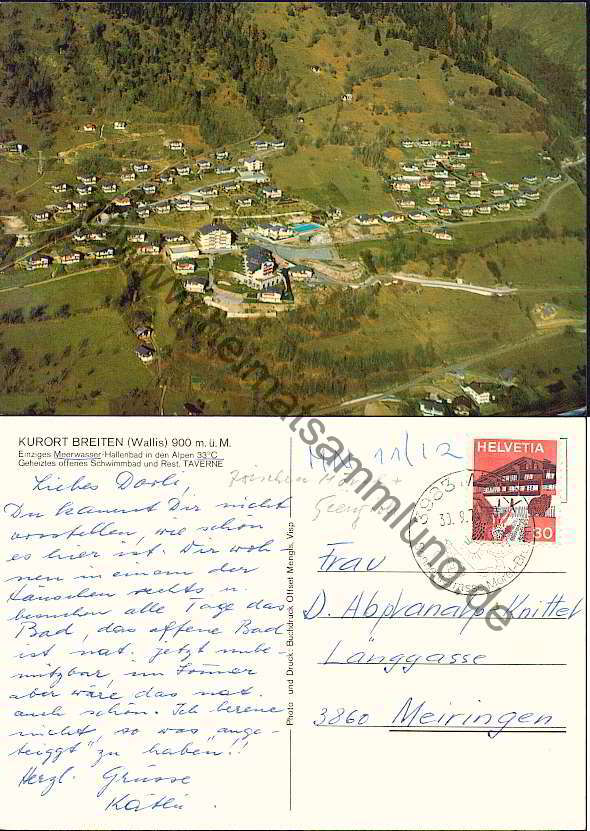 www.heimatsammlung.de
KURORT BREITEN (Wallis) 900 m. ü. M.
Einziges Meerwasser-Hallenbad in den Alpen 33°C
Geheiztes offenes Schwimmbad und Rest. TAVERNE
Liebes Dorli,
Du kannst Dir nicht
vorstellen, wie schön
es hier ist. Wir woh-
nen in einem der
Häuschen rechts u.
besuchen alle Tage das
Bad, das offene Bad
ist nat. jetzt unbe-
nützbar, im Sommer
aber wäre das nat.
auch schön. Ich bereue
nicht, so was "ange-
teiggt" zu haben!!
Herzl. Grüsse
Käthi
Photo und Druck: Buchdruck Offset Mengis, Visp
11/12
HELVETIA
30
3983
Frau
D. Abplanalp-Knittel
Länggasse
3860 Meiringen